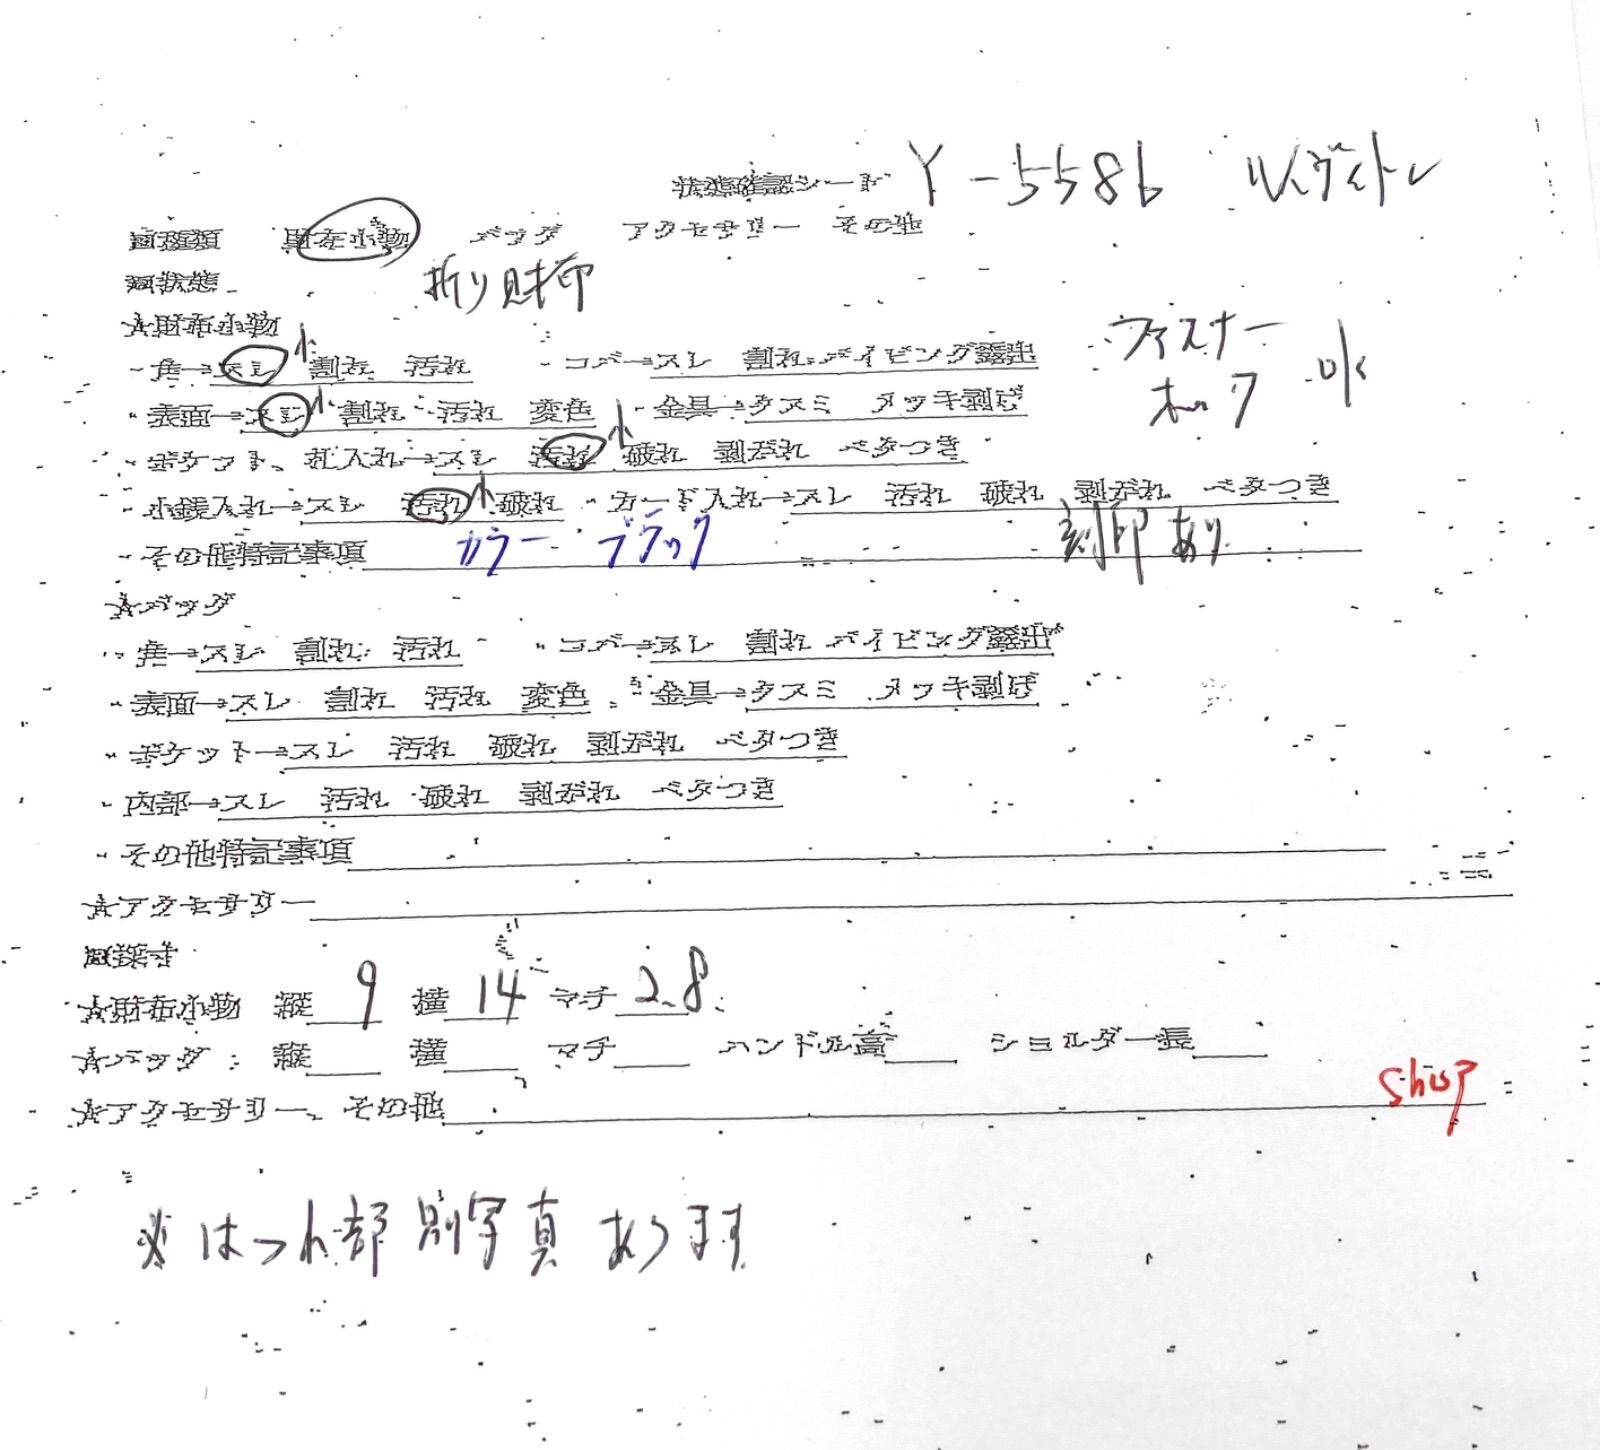 状態確認シート Y-5586 ルイヴィトン
■種類 財布小物 バッグ アクセサリー その他
■状態 折り財布
☆財布小物
・角→スレ小 割れ 汚れ ・コバ→スレ 割れ パイピング露出 ファスナー
・表面→スレ小 割れ 汚れ 変色 ・金具→クスミ メッキ剥げ ホック ok
・ポケット、札入れ→スレ 汚れ小 破れ 剥がれ ベタつき
・小銭入れ→スレ 汚れ小 破れ ・カード入れ→スレ 汚れ 破れ 剥がれ ベタつき
・その他特記事項 カラー ブラック 刻印あり
☆バッグ
・角→スレ 割れ 汚れ ・コバ→スレ 割れ パイピング露出
・表面→スレ 割れ 汚れ 変色 ・金具→クスミ メッキ剥げ
・ポケット→スレ 汚れ 破れ 剥がれ ベタつき
・内部→スレ 汚れ 破れ 剥がれ ベタつき
・その他特記事項
☆アクセサリー
■採寸
☆財布小物 縦 9 横 14 マチ 2.8
☆バッグ : 縦 横 マチ ハンドル高 ショルダー長
☆アクセサリー、その他 shop
※ほつれ部 別写真あります